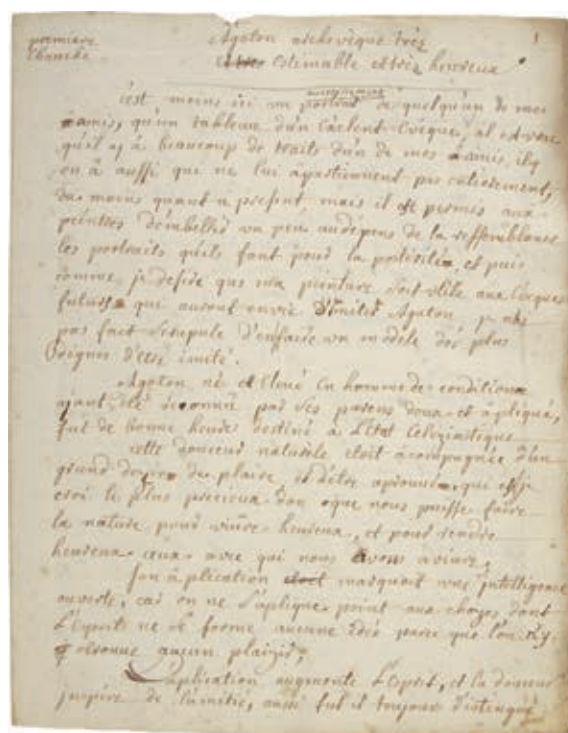 premiere
Ebauche
1
Agaton archevêque très
estimable et très heureux
c'est moins ici un portrait de quelqu'un de mes
amis, qu'un tableau d'un Exelent Evêque, il est vrai
qu'il y a beaucoup de traits d'un de mes amis, il y
en a aussi qui ne lui apartiennent pas entierement,
du moins quant a present, mais il est permis aux
peintres d'embellir un peu aux depens de la ressemblance
les portraits qu'ils font pour la posterité, et puis
comme je desire que ma peinture soit utile aux Evêques
futurs qui auront envie d'imiter Agaton je n'ai
pas fait scrupule d'en faire un modele des plus
dignes d'etre imité.
Agaton né et Elevé en homme de condition
ayant été reconnu par ses parens doux et apliqué,
fut de bonne heure destiné à L'etat Ecleziastique
cette douceur naturele etoit acompagnée d'un
grand dezir de plaire, et d'être aprouvé, qui est je
croi le plus precieux don que nous puisse faire
la nature pour vivre heureux, et pour rendre
heureux ceux avec qui nous avons a vivre,
son aplication marquoit une intelligence
ouverte, car on ne s'aplique point aux chozes dont
L'esprit ne se forme aucune idée parce que l'on n'y
trouve aucun plaizir,
L'aplication augmente L'esprit, et la douceur
inspire de l'amitié, aussi fut il toujours distingué